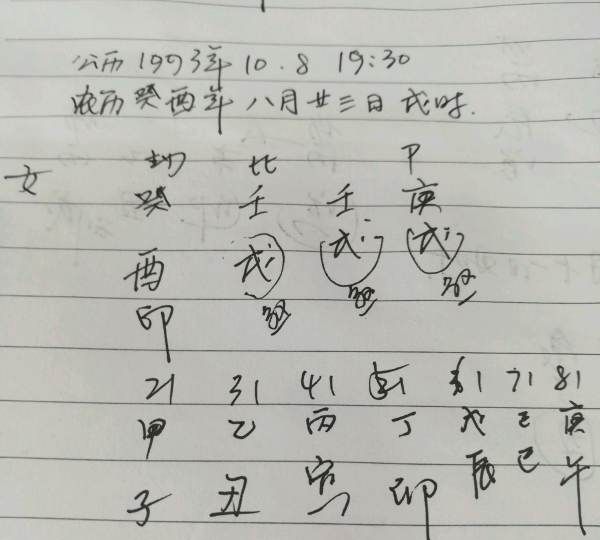 公历1993年10.8 19:30
农历癸酉年八月廿三日戌时.
劫 比 P
女 癸 壬 壬 庚
酉 戌 戌 戌
印 杀 杀 杀
21 31 41 51 61 71 81
甲 乙 丙 丁 戊 己 庚
子 丑 寅 卯 辰 巳 午